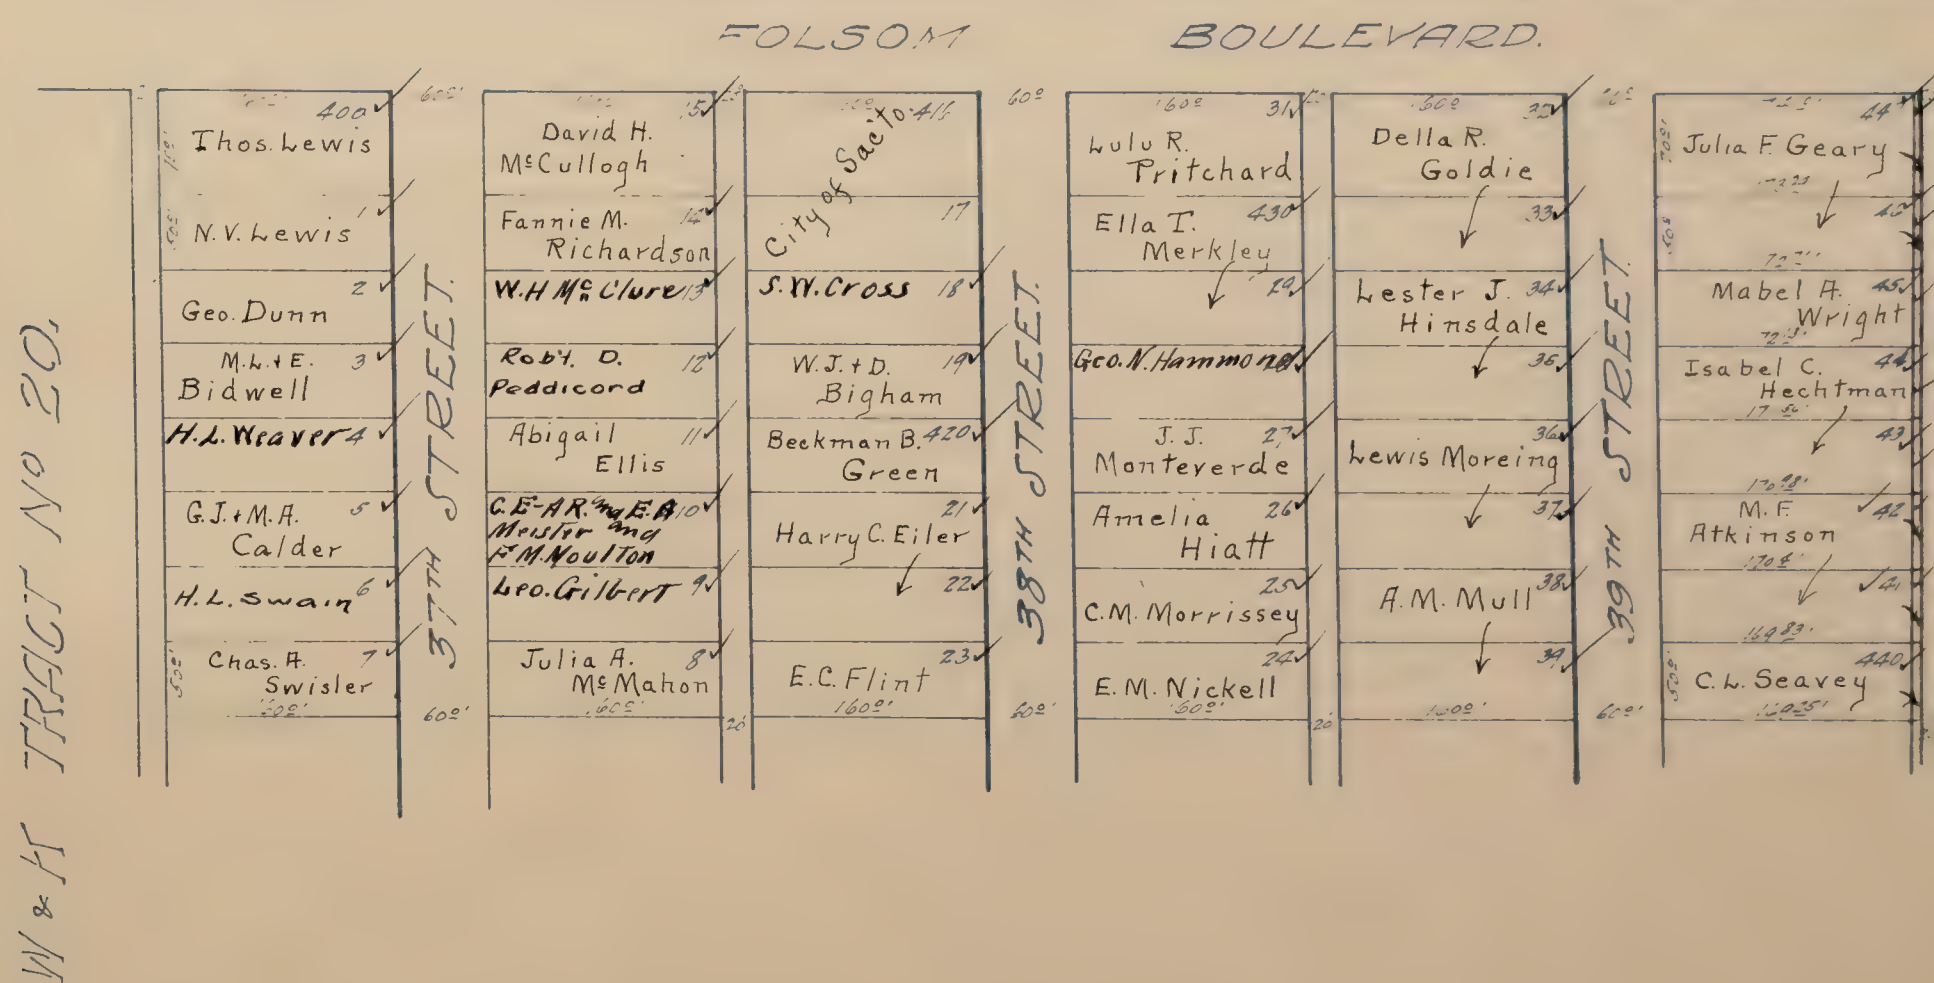 FOLSOM BOULEVARD.
W & K TRACT No 20.
400
Thos. Lewis
50º'
1
N.V. Lewis
2
Geo. Dunn
M.L. + E. 3
Bidwell
H.L. Weaver 4
G.J. + M.A. 5
Calder
H.L. Swain 6
50º'
Chas. A. 7
Swisler
37TH STREET.
60º'
60º'
15
David H.
McCullogh
Fannie M. 14
Richardson
W.H McClure 13
Rob't. D. 12
Peddicord
Abigail 11
Ellis
C.E-A R. and E.A 10
Meister and
F.M. Moulton
Leo. Gilbert 9
Julia A. 8
McMahon
160º'
20
416
City of Sacito.
17
S.W. Cross 18
W.J. + D. 19
Bigham
Beckman B. 420
Green
21
Harry C. Eiler
22
23
E.C. Flint
160º'
60º
38TH STREET.
60º'
160º 31
Lulu R.
Pritchard
Ella T. 430
Merkley
29
Geo. N. Hammond
J. J. 27
Monteverde
Amelia 26
Hiatt
25
C.M. Morrissey
24
E. M. Nickell
160º'
20
160º 32
Della R.
Goldie
33
Lester J. 34
Hinsdale
35
36
Lewis Moreing
37
A.M. Mull 38
39
160º'
39TH STREET.
60º'
Julia F. Geary
50º
Mabel A. 45
Wright
Isabel C. 44
Hechtman
43
170.98'
M. F. 42
Atkinson
170.4'
41
169.83'
440
50º'
C. L. Seavey
169.25'